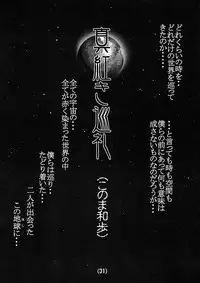 どれくらいの時を
どれだけの世界を巡って
きたのか････
･･･と言っても時も空間も
僕らの前にあって何も意味は
成さないものなのだろうが･･･
真紅き巡礼
(このま和歩)
全ての宇宙の
全てが赤く染まった世界の中
僕は巡り･･･
たどり着いた･･･
二人が出会った
この地球に･･･
(31)